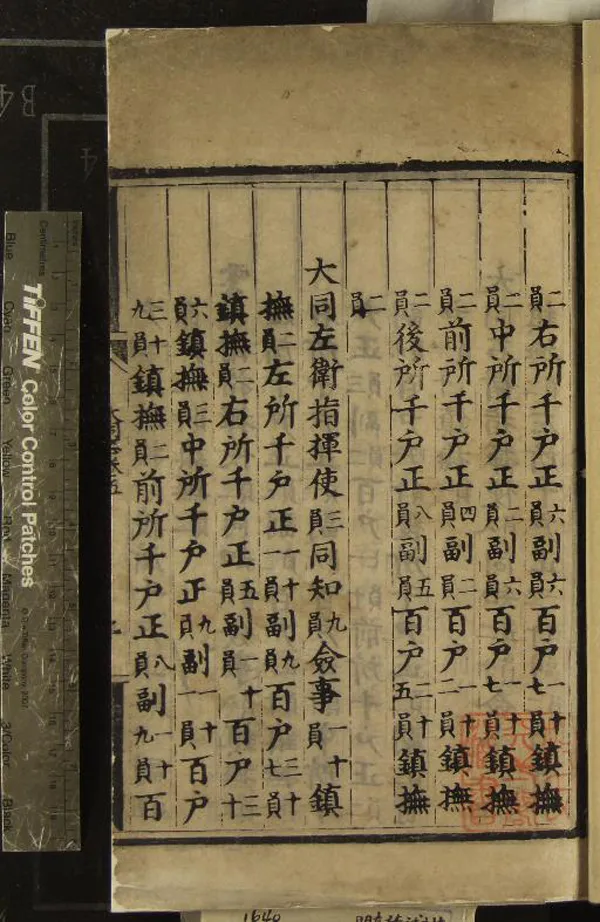 二員右所千户正六員副六員百户一十七員鎮撫
二員中所千户正二員副六員百户一十七員鎮撫
二員前所千户正四員副二員百户一十二員鎮撫
二員後所千户正八員副五員百户二十五員鎮撫
二員
大同左衛指揮使三員同知九員僉事一十員鎮
撫二員左所千户正一十一員副九員百户三十七員
鎮撫二員右所千户正五員副一十員百户三十
六員鎮撫三員中所千户正九員副一十一員百户
三十九員鎮撫二員前所千户正八員副一十九員百
TIFFEN Color Control Patches
Centimetres
Blue Cyan Green Yellow Red Magenta White 3/Color Black
B4
4
1640